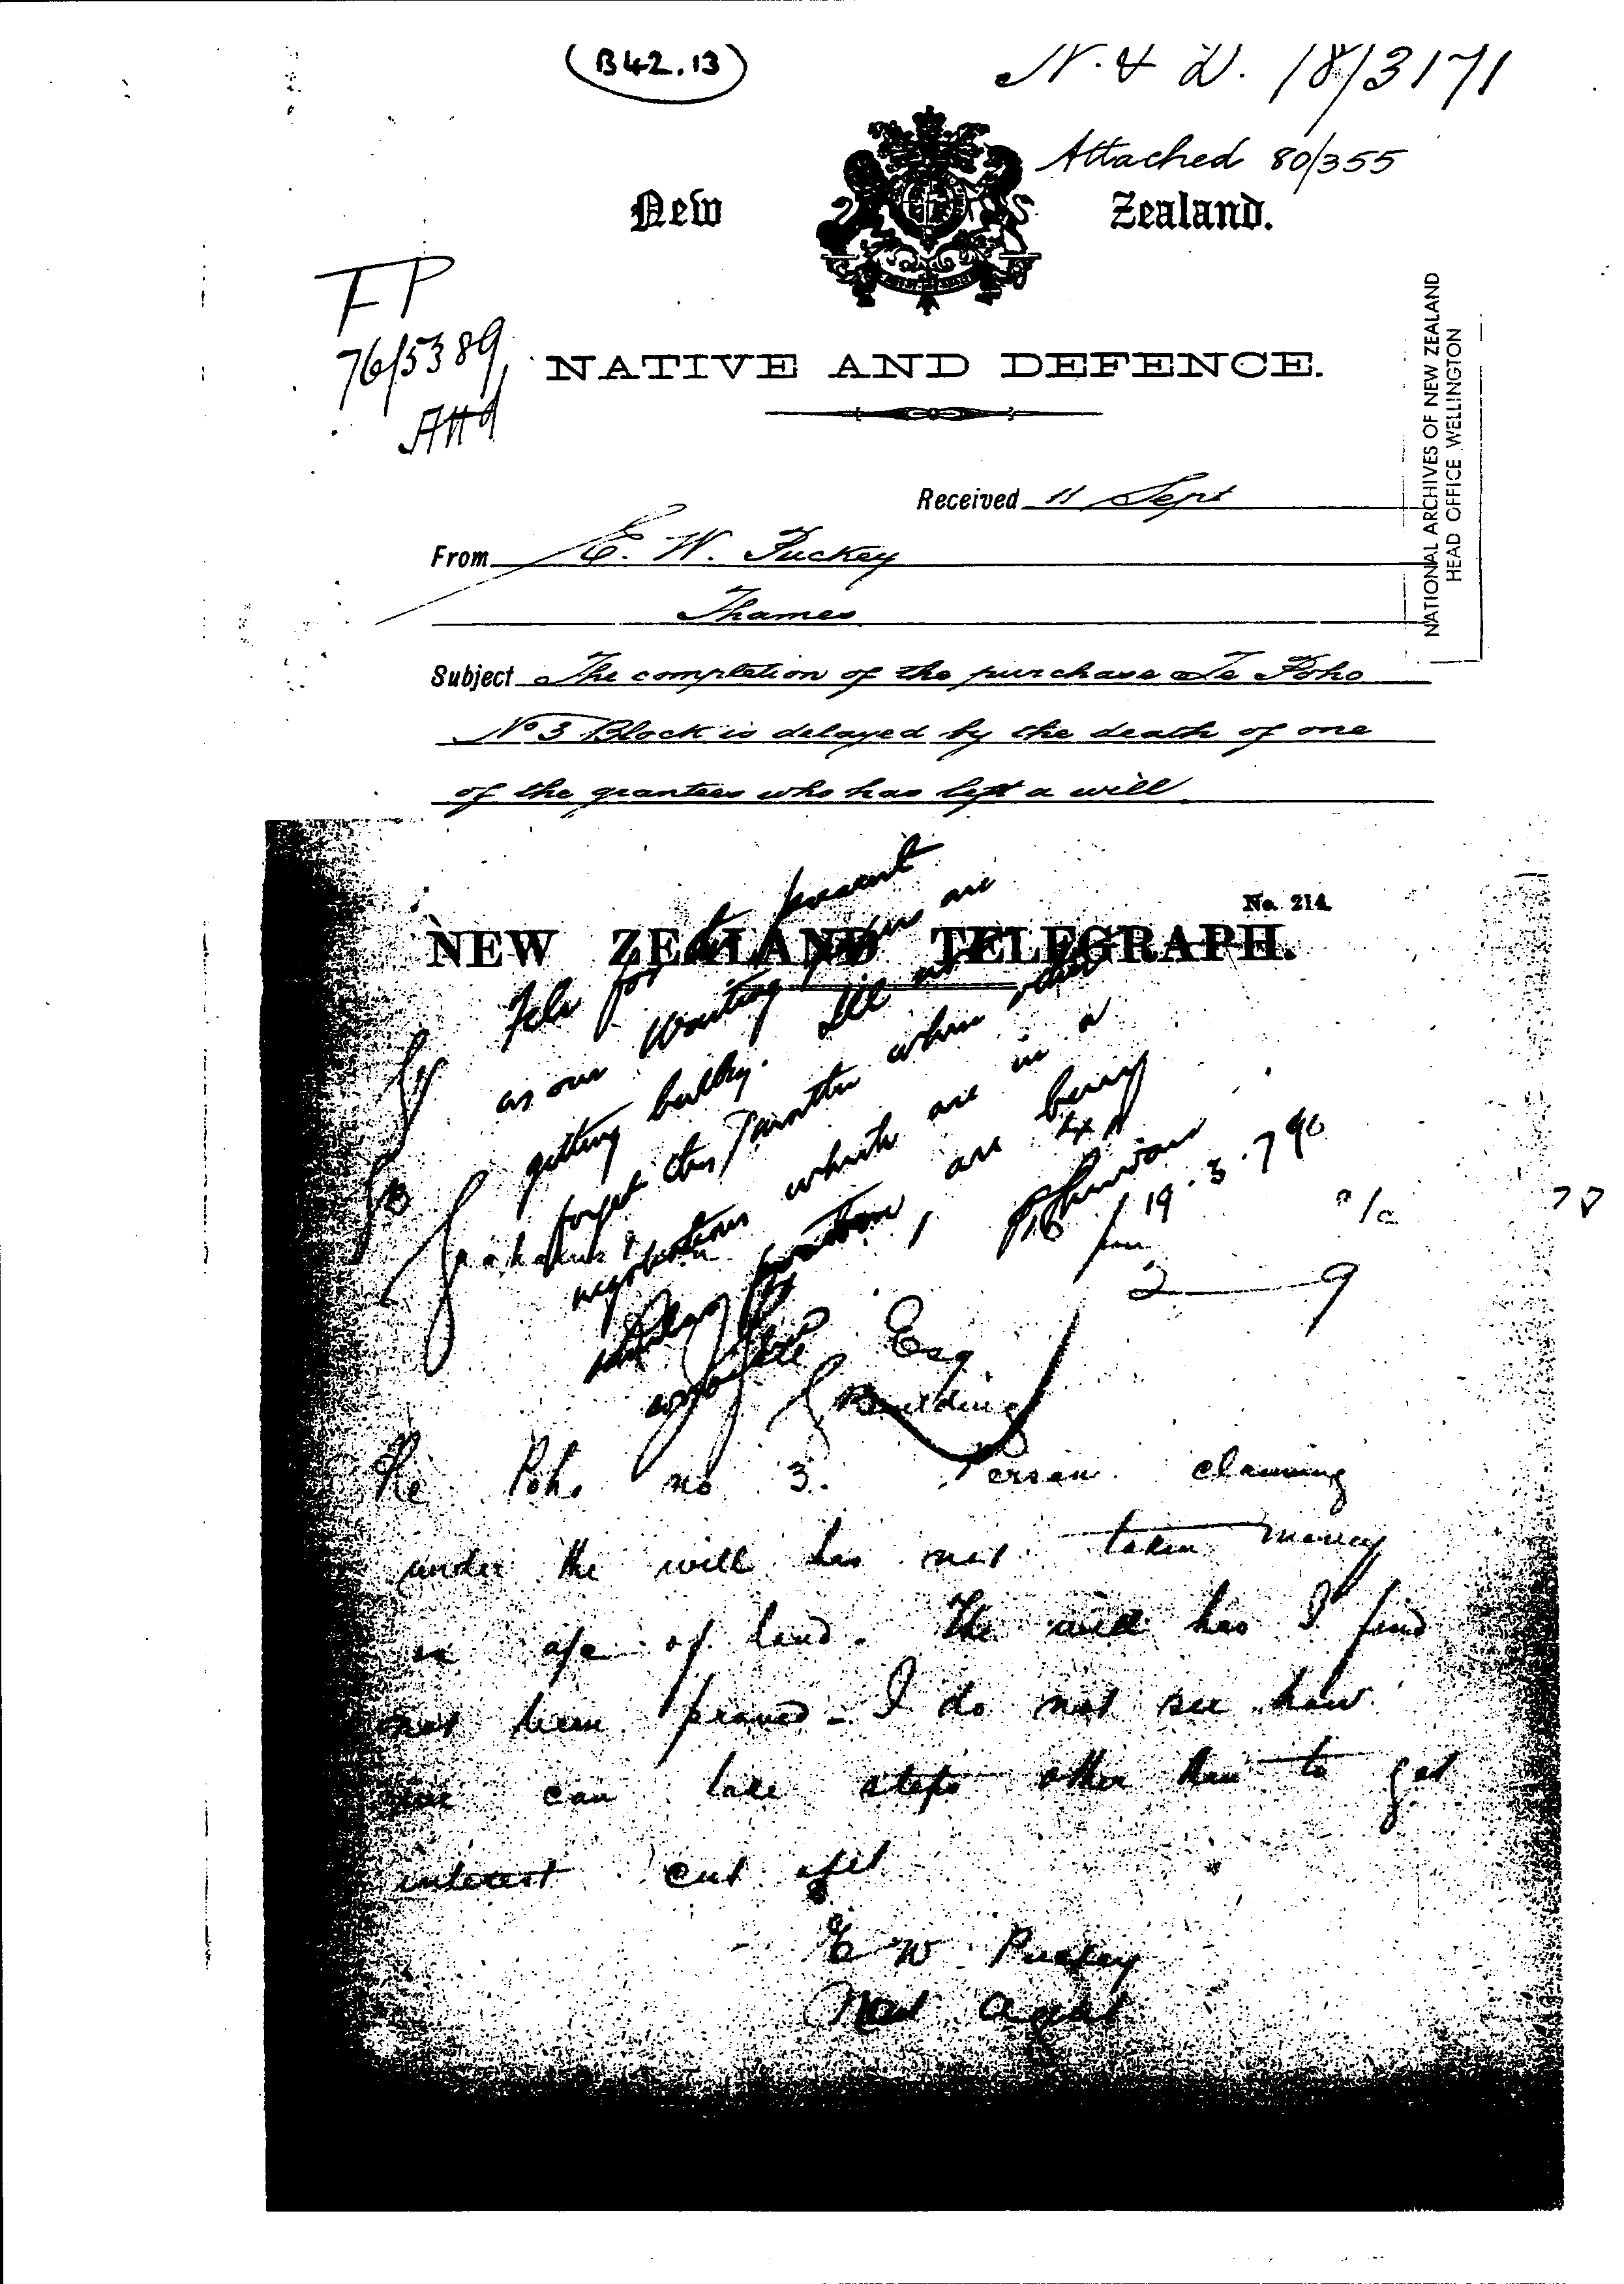 B42.13
N. & D. 18/3171
Attached 80/355
New Zealand.
FP
76/5389
Attd
NATIVE AND DEFENCE.
NATIONAL ARCHIVES OF NEW ZEALAND
HEAD OFFICE WELLINGTON
Received 11 Sept
From E. W. Puckey
Thames
Subject The completion of the purchase Te Poho
No 3 Block is delayed by the death of one
of the grantees who has left a will
No. 214.
NEW ZEALAND TELEGRAPH.
File for the present
as our Waiting are
getting bulky.
forget this when
negotiations which are in a
similar position, are being
19.3.79
2 9
Esq
Building
Re Poho no 3. Person claiming
under the will has not taken money
on a/c of land. The will has I find
not been proved - I do not see how
we can take steps other than to get
interest cut off
E W Puckey
Nat Agent